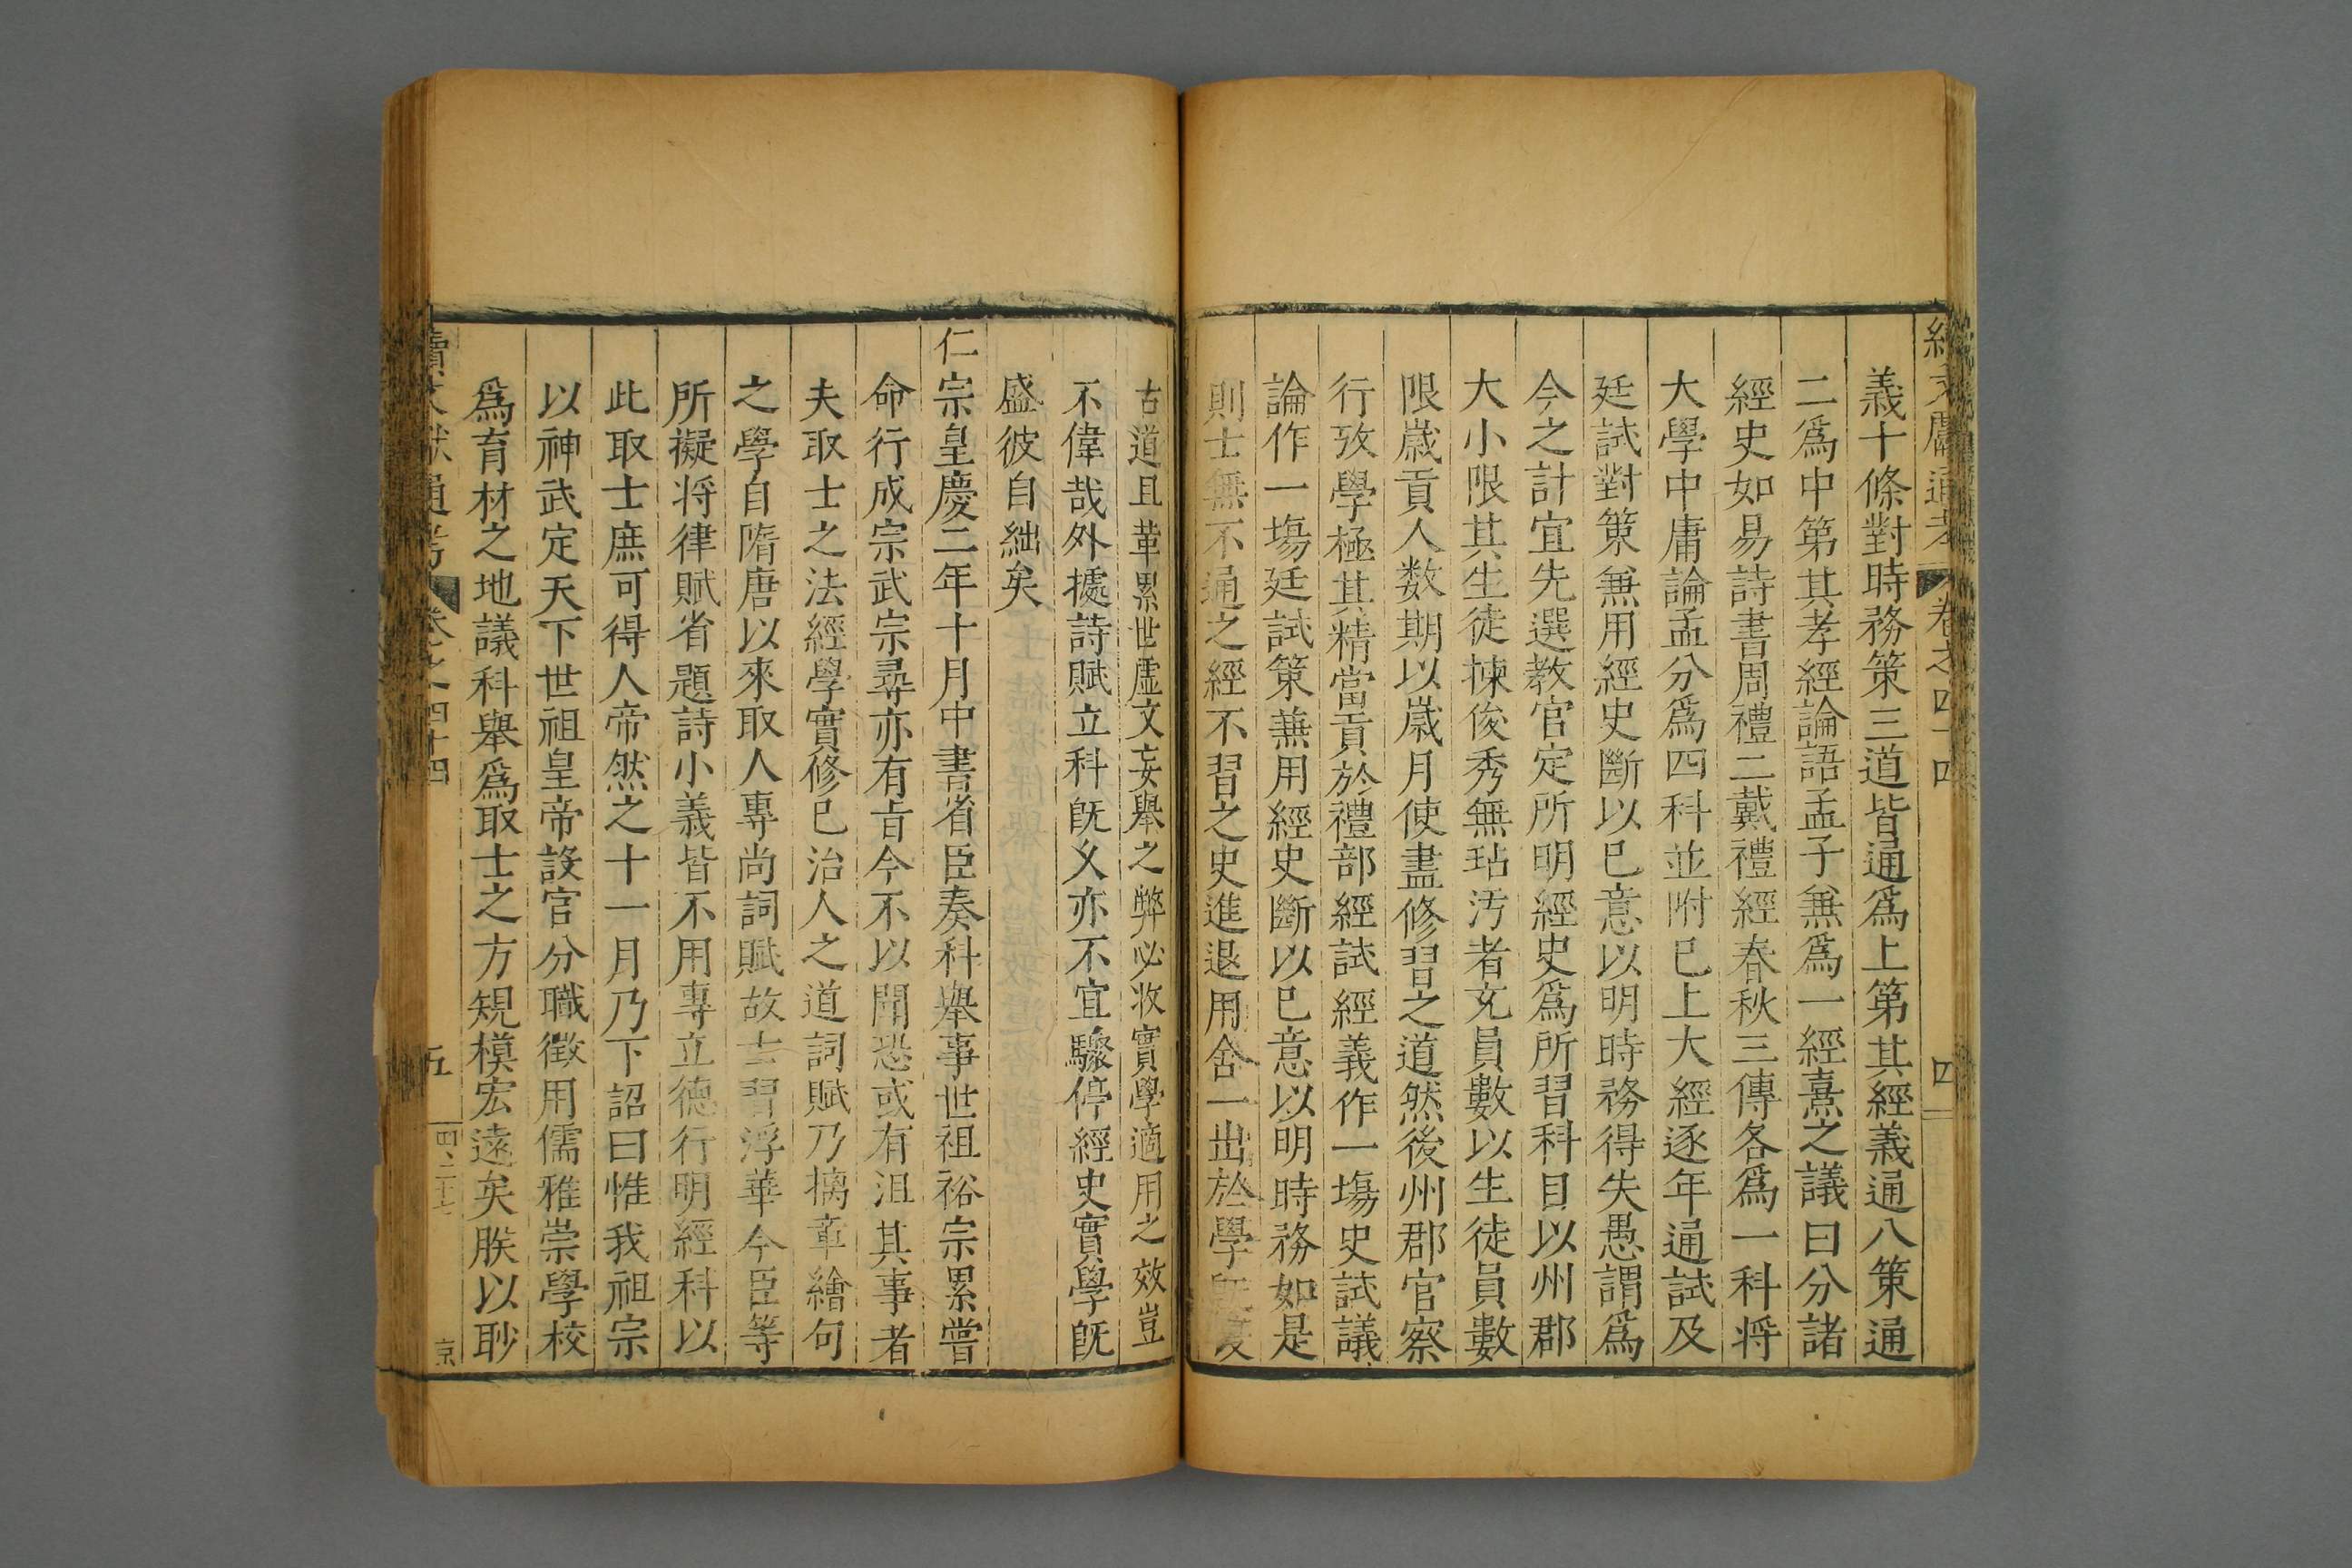 續文獻通考 卷之四十四 四
義十條對時務策三道皆通爲上第其經義通八策通
二爲中第其孝經論語孟子兼爲一經熹之議曰分諸
經史如易詩書周禮二戴禮經春秋三傳各爲一科将
大學中庸論孟分爲四科並附已上大經逐年通試及
廷試對策兼用經史斷以已意以明時務得失愚謂爲
今之計宜先選教官定所明經史爲所習科目以州郡
大小限其生徒揀俊秀無玷汚者充員數以生徒員數
限歲貢人数期以歲月使盡修習之道然後州郡官察
行攷學極其精當貢於禮部經試經義作一塲史試議
論作一塲廷試策兼用經史斷以已意以明時務如是
則士無不通之經不習之史進退用舍一出於學
古道且革累世虛文妄舉之弊必收實學適用之效豈
不偉哉外據詩賦立科旣乆亦不宜驟停經史實學旣
盛彼自絀矣
仁宗皇慶二年十月中書省臣奏科舉事世祖裕宗累嘗
命行成宗武宗尋亦有旨今不以聞恐或有沮其事者
夫取士之法經學實修已治人之道詞賦乃摛章繪句
之學自隋唐以來取人專尚詞賦故士習浮華今臣等
所擬将律賦省題詩小義皆不用專立德行明經科以
此取士庶可得人帝然之十一月乃下詔曰惟我祖宗
以神武定天下世祖皇帝設官分職徵用儒雅崇學校
爲育材之地議科舉爲取士之方規模宏遠矣朕以眇
續文獻通考 卷之四十四 五
京